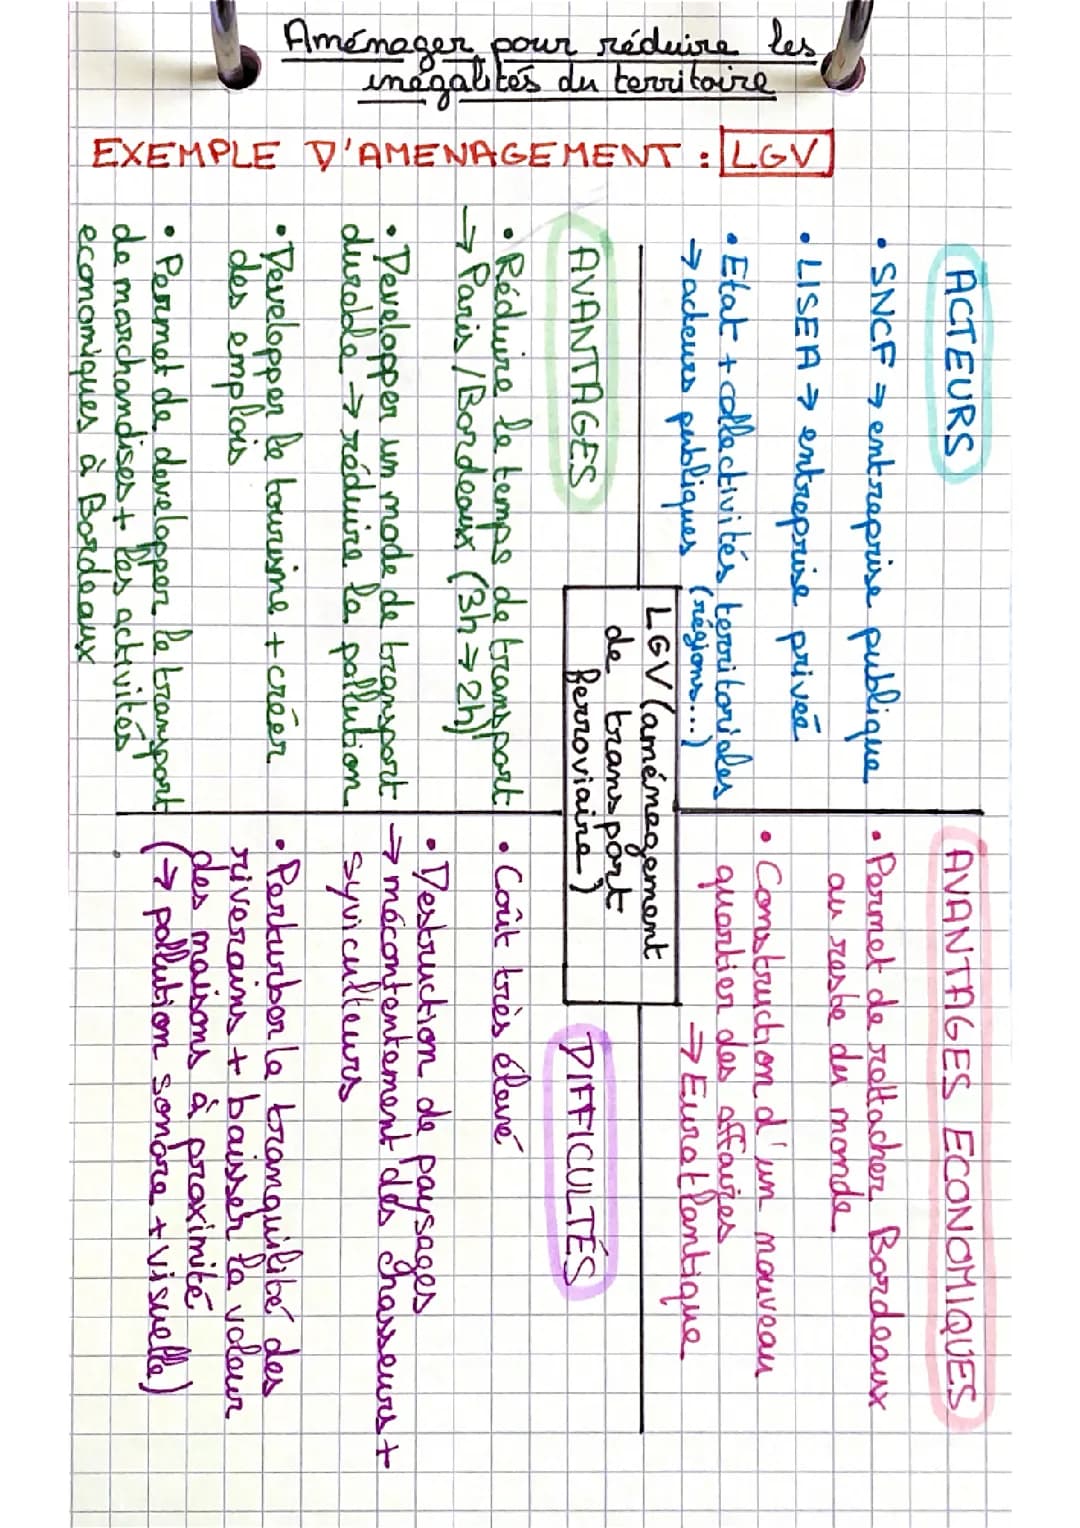 Aménager pour réduire les
inégalités du territoire
EXEMPLE D'AMENAGEMENT : LGV
ACTEURS
• SNCF → entreprise publique
• LISEA → entreprise priveé
• Etat + collectivités territoriales
→ acteurs publiques (régions...)
AVANTAGES ECONOMIQUES
• Permet de rattacher Bordeaux
au reste du monde
• Construction d'un nouveau
quartier des affaires
→ Euratlantique
LGV (aménagement
de transport
ferroviaire)
AVANTAGES
• Réduire le temps de transport
→ Paris / Bordeaux (3h → 2h)
• Developper un mode de transport
durable → réduire la pollution
• Developper le tourisme + créer
des emplois
• Permet de developper le transport
de marchandises + les activités
economiques à Bordeaux
DIFFICULTÉS
• Coût très élevé
• Destruction de paysages
→ mécontentement des chasseurs +
syviculteurs
• Perturber la tranquilité des
riverains + baisser la valeur
des maisons à proximité
(→ pollution sonore + visuelle)